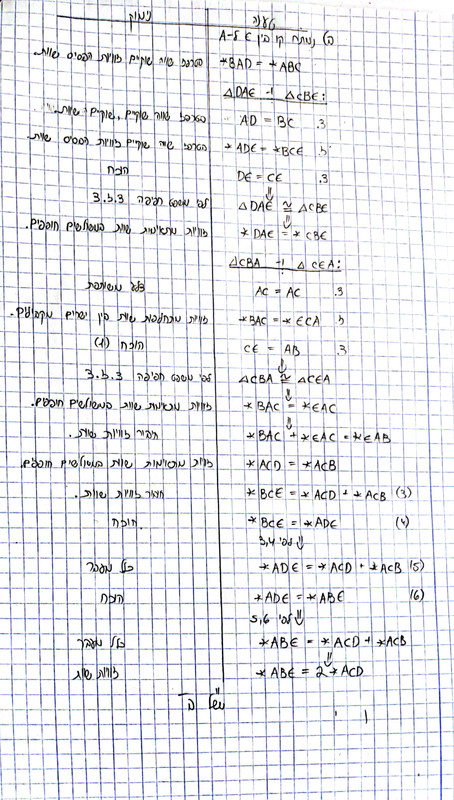 טענה נימוק
ב) נמתח קו בין C ל-A
∢BAD = ∢ABC בטרפז שווה שוקיים זוויות הבסיס שוות.
△DAE ו- △CBE:
צ. AD = BC בטרפז שווה שוקיים, שוקיים שוות.
ז. ∢ADE = ∢BCE בטרפז שווה שוקיים זוויות הבסיס שוות.
צ. DE = CE הוכח
⇓
△DAE ≅ △CBE לפי משפט חפיפה צ.ז.צ
⇓
∢DAE = ∢CBE זוויות מתאימות שוות במשולשים חופפים.
△CBA ו- △CEA:
צ. AC = AC צלע משותפת
ז. ∢BAC = ∢ECA זוויות מתחלפות שוות בין ישרים מקבילים.
צ. CE = AB הוכח (1)
⇓
△CBA ≅ △CEA לפי משפט חפיפה צ.ז.צ
⇓
∢BAC = ∢EAC זוויות מתאימות שוות במשולשים חופפים.
⇓
∢BAC + ∢EAC = ∢EAB חיבור זוויות שוות.
∢ACD = ∢ACB זוויות מתאימות שוות במשולשים חופפים.
(3) ∢BCE = ∢ACD + ∢ACB חיבור זוויות שוות.
(4) ∢BCE = ∢ADE הוכח.
לפי 3,4 ⇓
(5) ∢ADE = ∢ACD + ∢ACB כלל מעבר
(6) ∢ADE = ∢ABE הוכח
לפי 5,6 ⇓
∢ABE = ∢ACD + ∢ACB כלל מעבר
⇓
∢ABE = 2∢ACD זוויות שוות
מש"ל ב